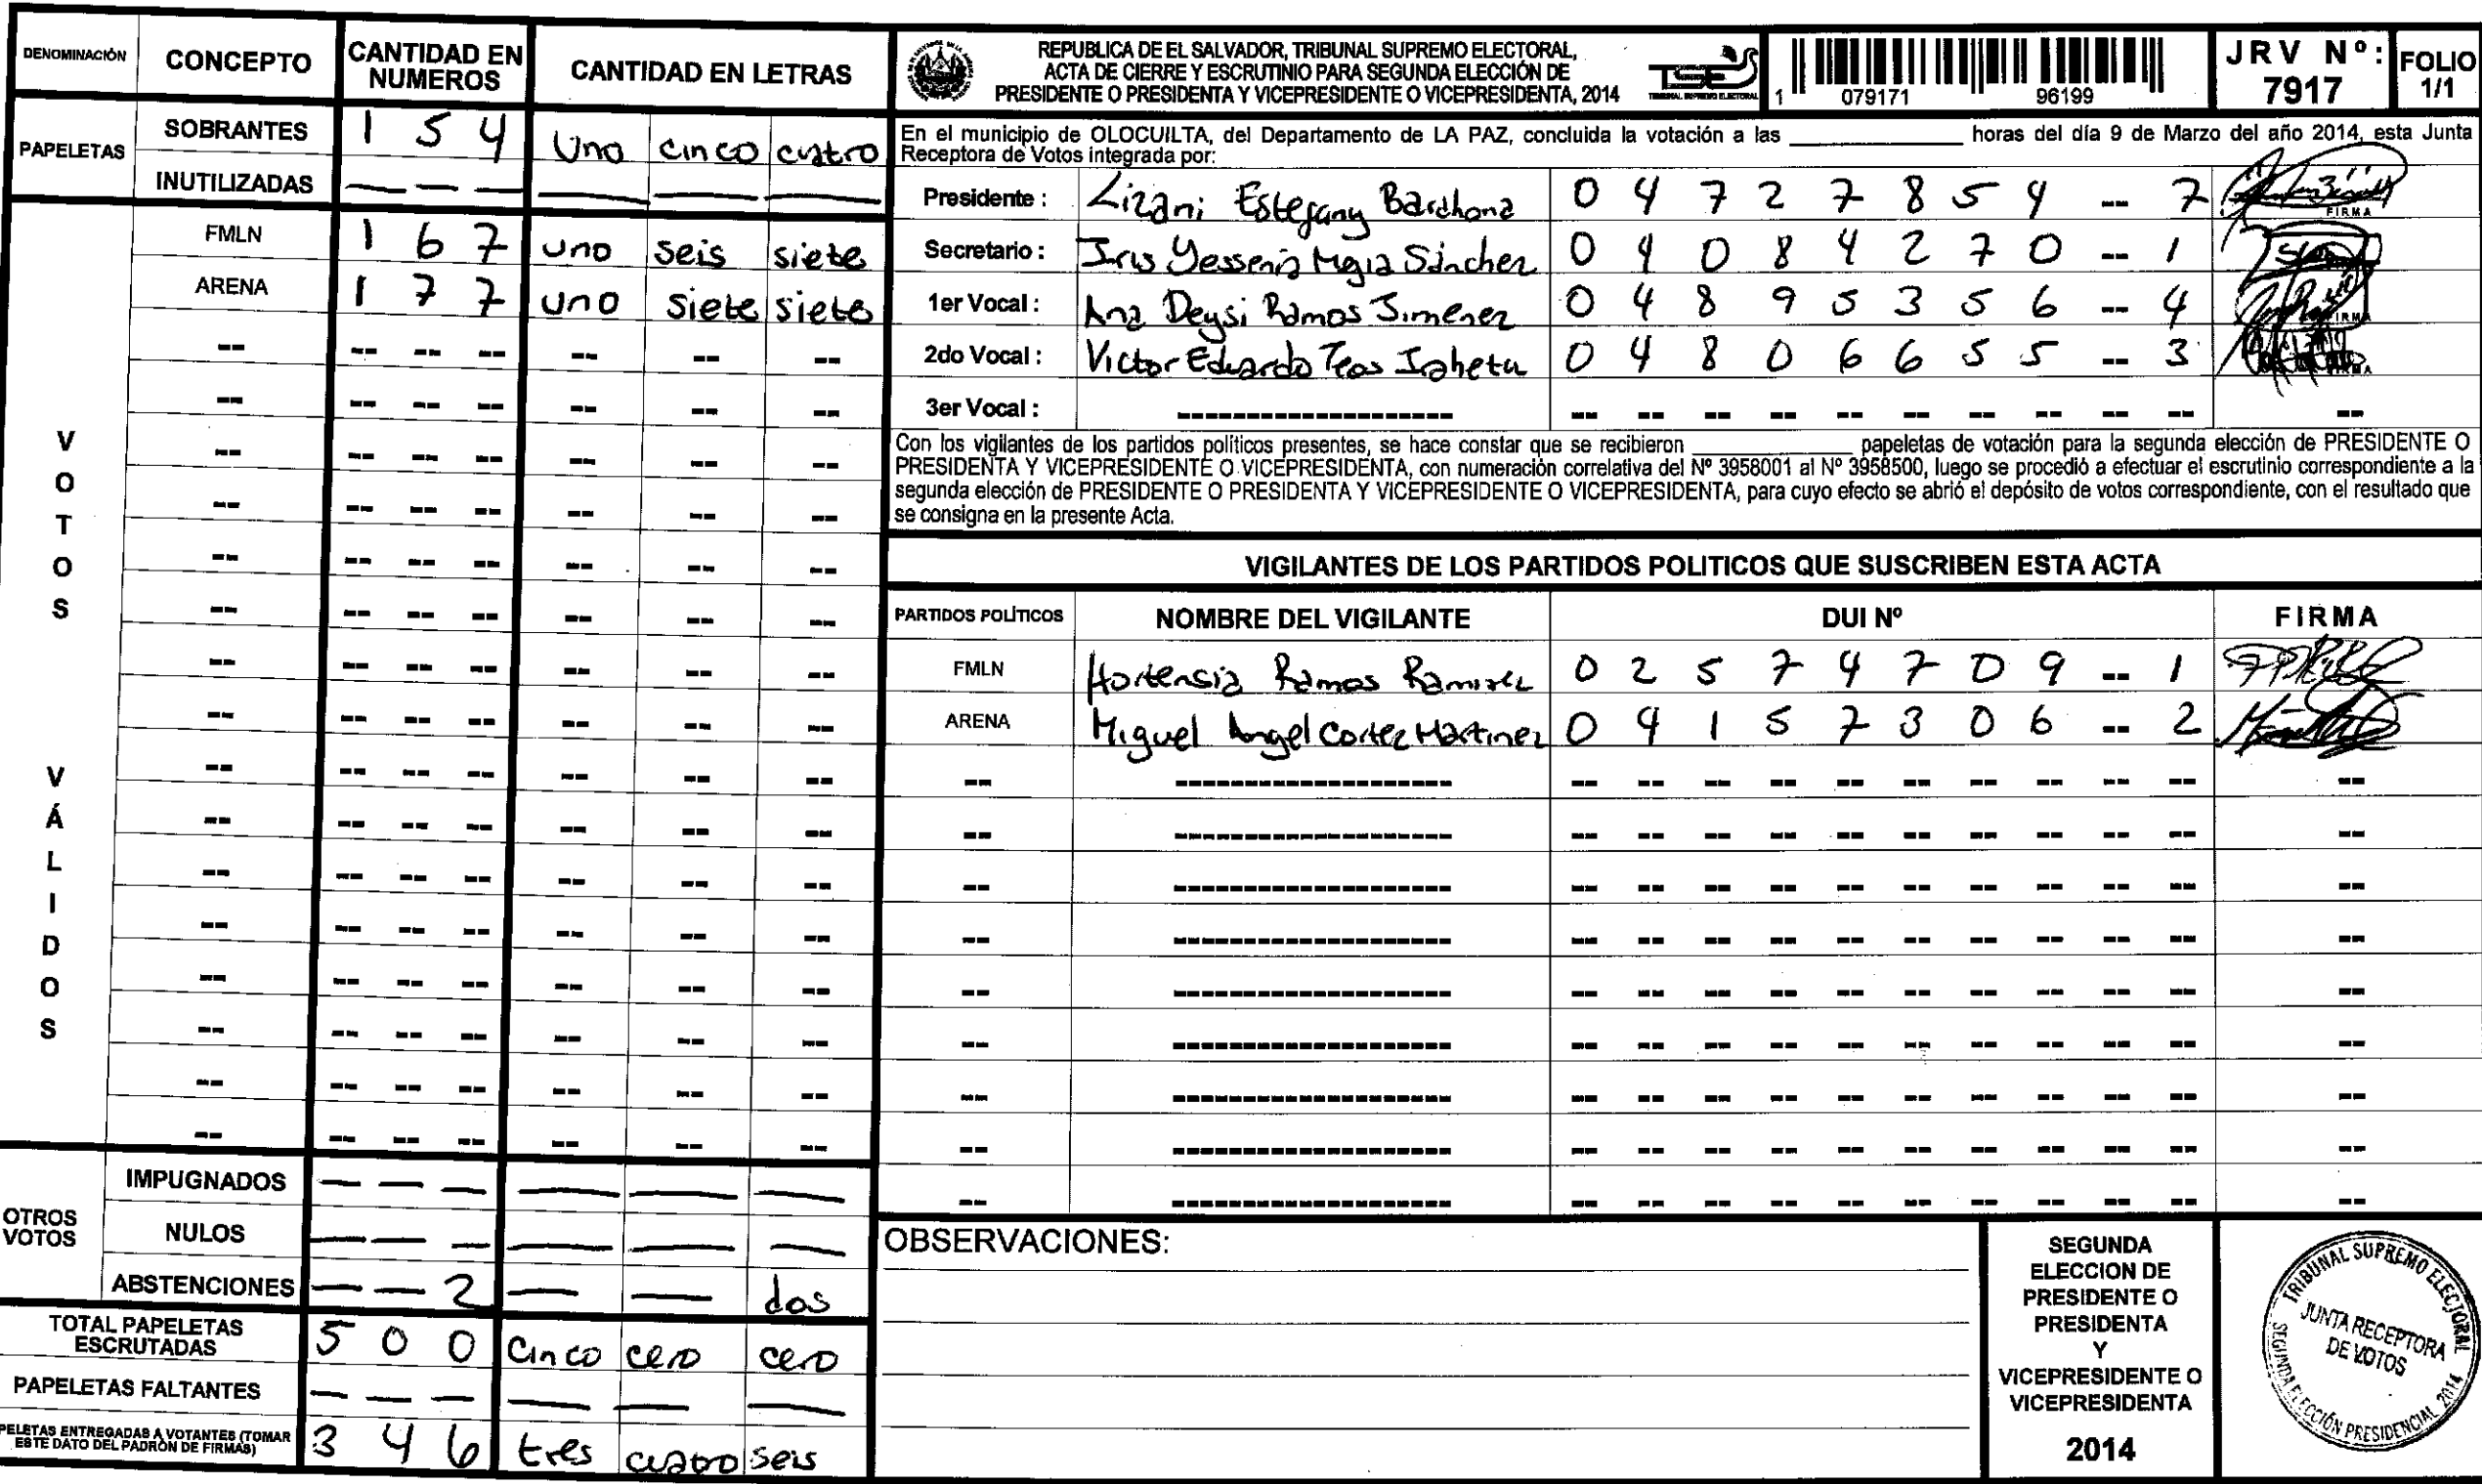 DENOMINACIÓN CONCEPTO CANTIDAD EN NUMEROS CANTIDAD EN LETRAS
PAPELETAS
SOBRANTES 1 5 4 Uno cinco cuatro
INUTILIZADAS — — — — — —
VOTOS VÁLIDOS
FMLN 1 6 7 uno seis siete
ARENA 1 7 7 uno siete siete
OTROS VOTOS
IMPUGNADOS — — — — — —
NULOS — — — — — —
ABSTENCIONES — — 2 — — dos
TOTAL PAPELETAS ESCRUTADAS 5 0 0 Cinco cero cero
PAPELETAS FALTANTES — — — — — —
PELETAS ENTREGADAS A VOTANTES (TOMAR ESTE DATO DEL PADRÓN DE FIRMAS) 3 4 6 tres cuatro seis
REPUBLICA DE EL SALVADOR, TRIBUNAL SUPREMO ELECTORAL,
ACTA DE CIERRE Y ESCRUTINIO PARA SEGUNDA ELECCIÓN DE
PRESIDENTE O PRESIDENTA Y VICEPRESIDENTE O VICEPRESIDENTA, 2014
TSE
TRIBUNAL SUPREMO ELECTORAL
1 079171 96199
JRV Nº: 7917
FOLIO 1/1
En el municipio de OLOCUILTA, del Departamento de LA PAZ, concluida la votación a las ____________ horas del día 9 de Marzo del año 2014, esta Junta
Receptora de Votos integrada por:
Presidente : Lizani Estefany Barahona 0 4 7 2 7 8 5 4 -- 7 FIRMA
Secretario : Iris Yessenia Mejia Sánchez 0 4 0 8 4 2 7 0 -- 1
1er Vocal : Ana Deysi Ramos Jimenez 0 4 8 9 5 3 5 6 -- 4
2do Vocal : Victor Eduardo Teos Iraheta 0 4 8 0 6 6 5 5 -- 3
3er Vocal : ------------------- -- -- -- -- -- -- -- -- -- -- --
Con los vigilantes de los partidos políticos presentes, se hace constar que se recibieron ____________ papeletas de votación para la segunda elección de PRESIDENTE O
PRESIDENTA Y VICEPRESIDENTE O VICEPRESIDENTA, con numeración correlativa del Nº 3958001 al Nº 3958500, luego se procedió a efectuar el escrutinio correspondiente a la
segunda elección de PRESIDENTE O PRESIDENTA Y VICEPRESIDENTE O VICEPRESIDENTA, para cuyo efecto se abrió el depósito de votos correspondiente, con el resultado que
se consigna en la presente Acta.
VIGILANTES DE LOS PARTIDOS POLITICOS QUE SUSCRIBEN ESTA ACTA
PARTIDOS POLÍTICOS NOMBRE DEL VIGILANTE DUI Nº FIRMA
FMLN Hortensia Ramos Ramirez 0 2 5 7 4 7 0 9 -- 1
ARENA Miguel Angel Cortez Martinez 0 4 1 5 7 3 0 6 -- 2
OBSERVACIONES:
SEGUNDA
ELECCION DE
PRESIDENTE O
PRESIDENTA
Y
VICEPRESIDENTE O
VICEPRESIDENTA
2014
TRIBUNAL SUPREMO ELECTORAL
JUNTA RECEPTORA
DE VOTOS
SEGUNDA ELECCIÓN PRESIDENCIAL 2014